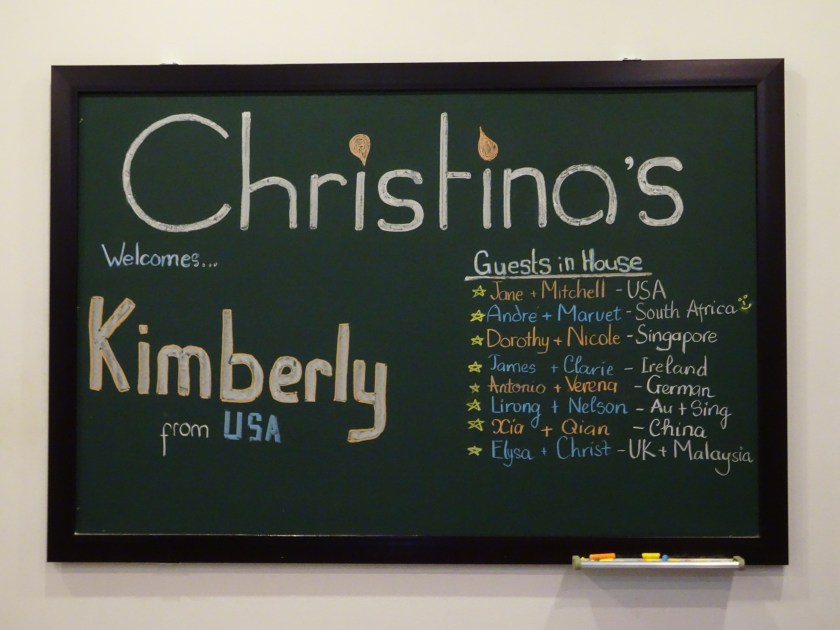 Christina's
Welcomes...
Kimberly
from USA
Guests in House
Jane + Mitchell - USA
Andre + Maruet - South Africa
Dorothy + Nicole - Singapore
James + Clarie - Ireland
Antonio + Verena - German
Lirong + Nelson - Au + Sing
Xia + Qian - China
Elysa + Christ - UK + Malaysia